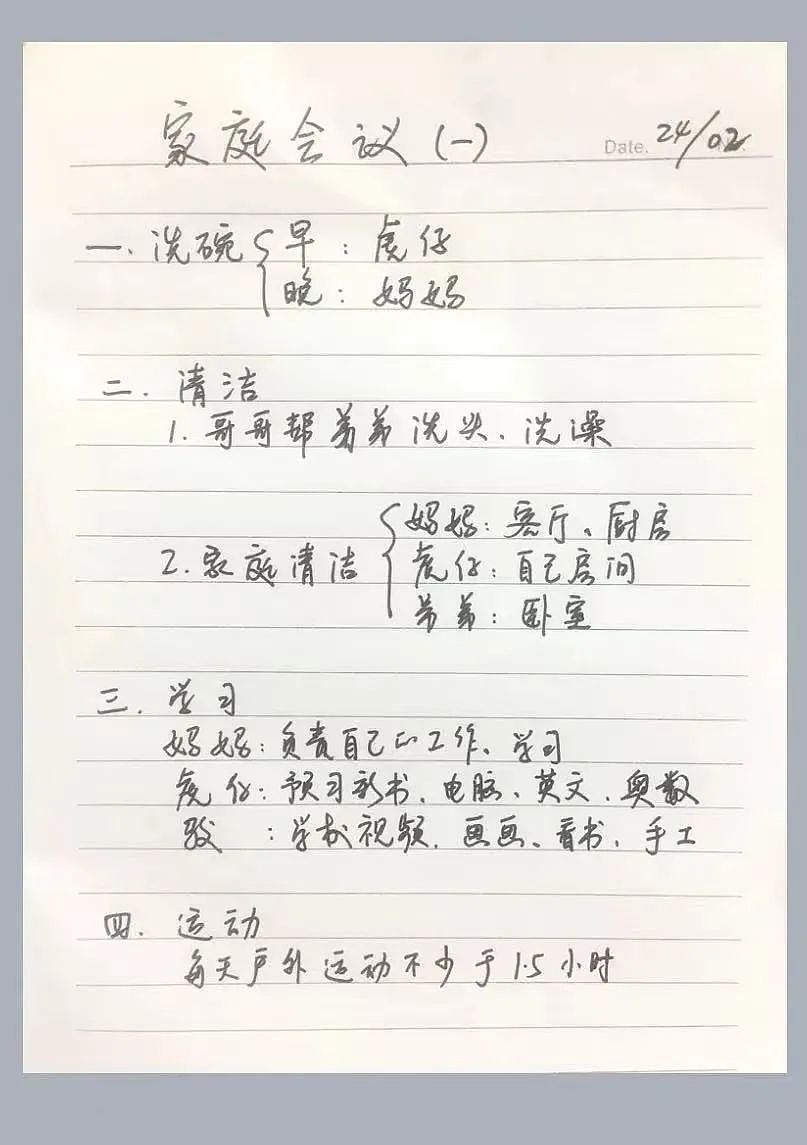 家庭会议(一)
Date. 24/02
一. 洗碗 { 早：虎仔
晚：妈妈
二. 清洁
1. 哥哥帮弟弟洗头、洗澡
妈妈：客厅、厨房
2. 家庭清洁 { 虎仔：自己房间
弟弟：卧室
三. 学习
妈妈：负责自己的工作、学习
虎仔：预习新书、电脑、英文、奥数
骏 ：学校视频、画画、看书、手工
四. 运动
每天户外运动不少于1.5小时